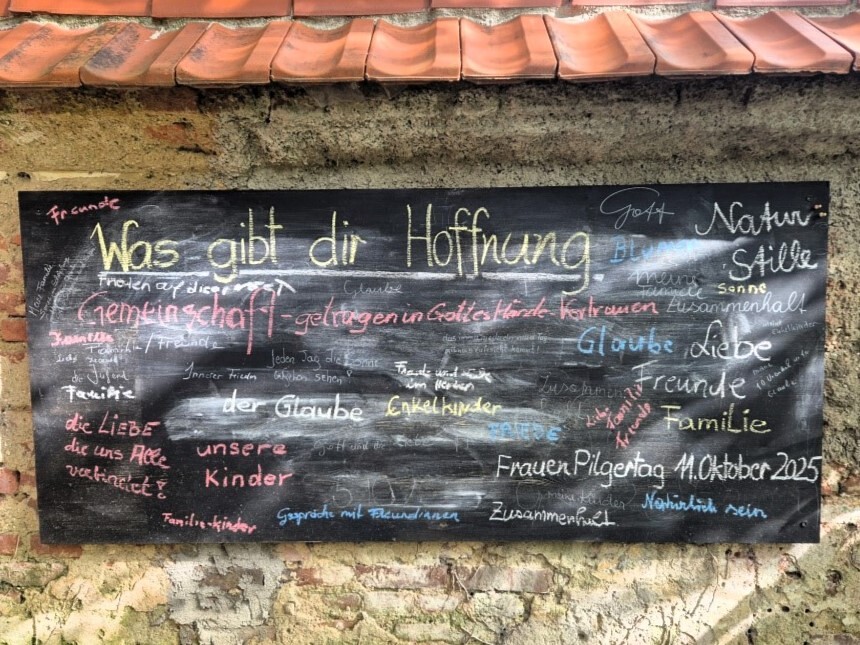 Freunde
Gott
Natur
Was gibt dir Hoffnung
Blumen
Stille
meine
Familie
Sonne
Frieden auf dieser Welt
Glaube
Gemeinschaft - getragen in Gottes Hände - Vertrauen
Zusammenhalt
Familie
Familie / Freunde
Glaube
Liebe
die Jugend
Innerer Frieden
jeden Tag die Sonne
sehen
Freude und
im Herzen
Zusammen
Freunde
Familie
der Glaube
Enkelkinder
Liebe
Familie
Freunde
Familie
die LIEBE
die uns Alle
verbindet!
unsere
Kinder
FRIEDE
Frauen Pilgertag 11. Oktober 2025
Familie + Kinder
Gespräche mit Freundinnen
Zusammenhalt
Natürlich sein